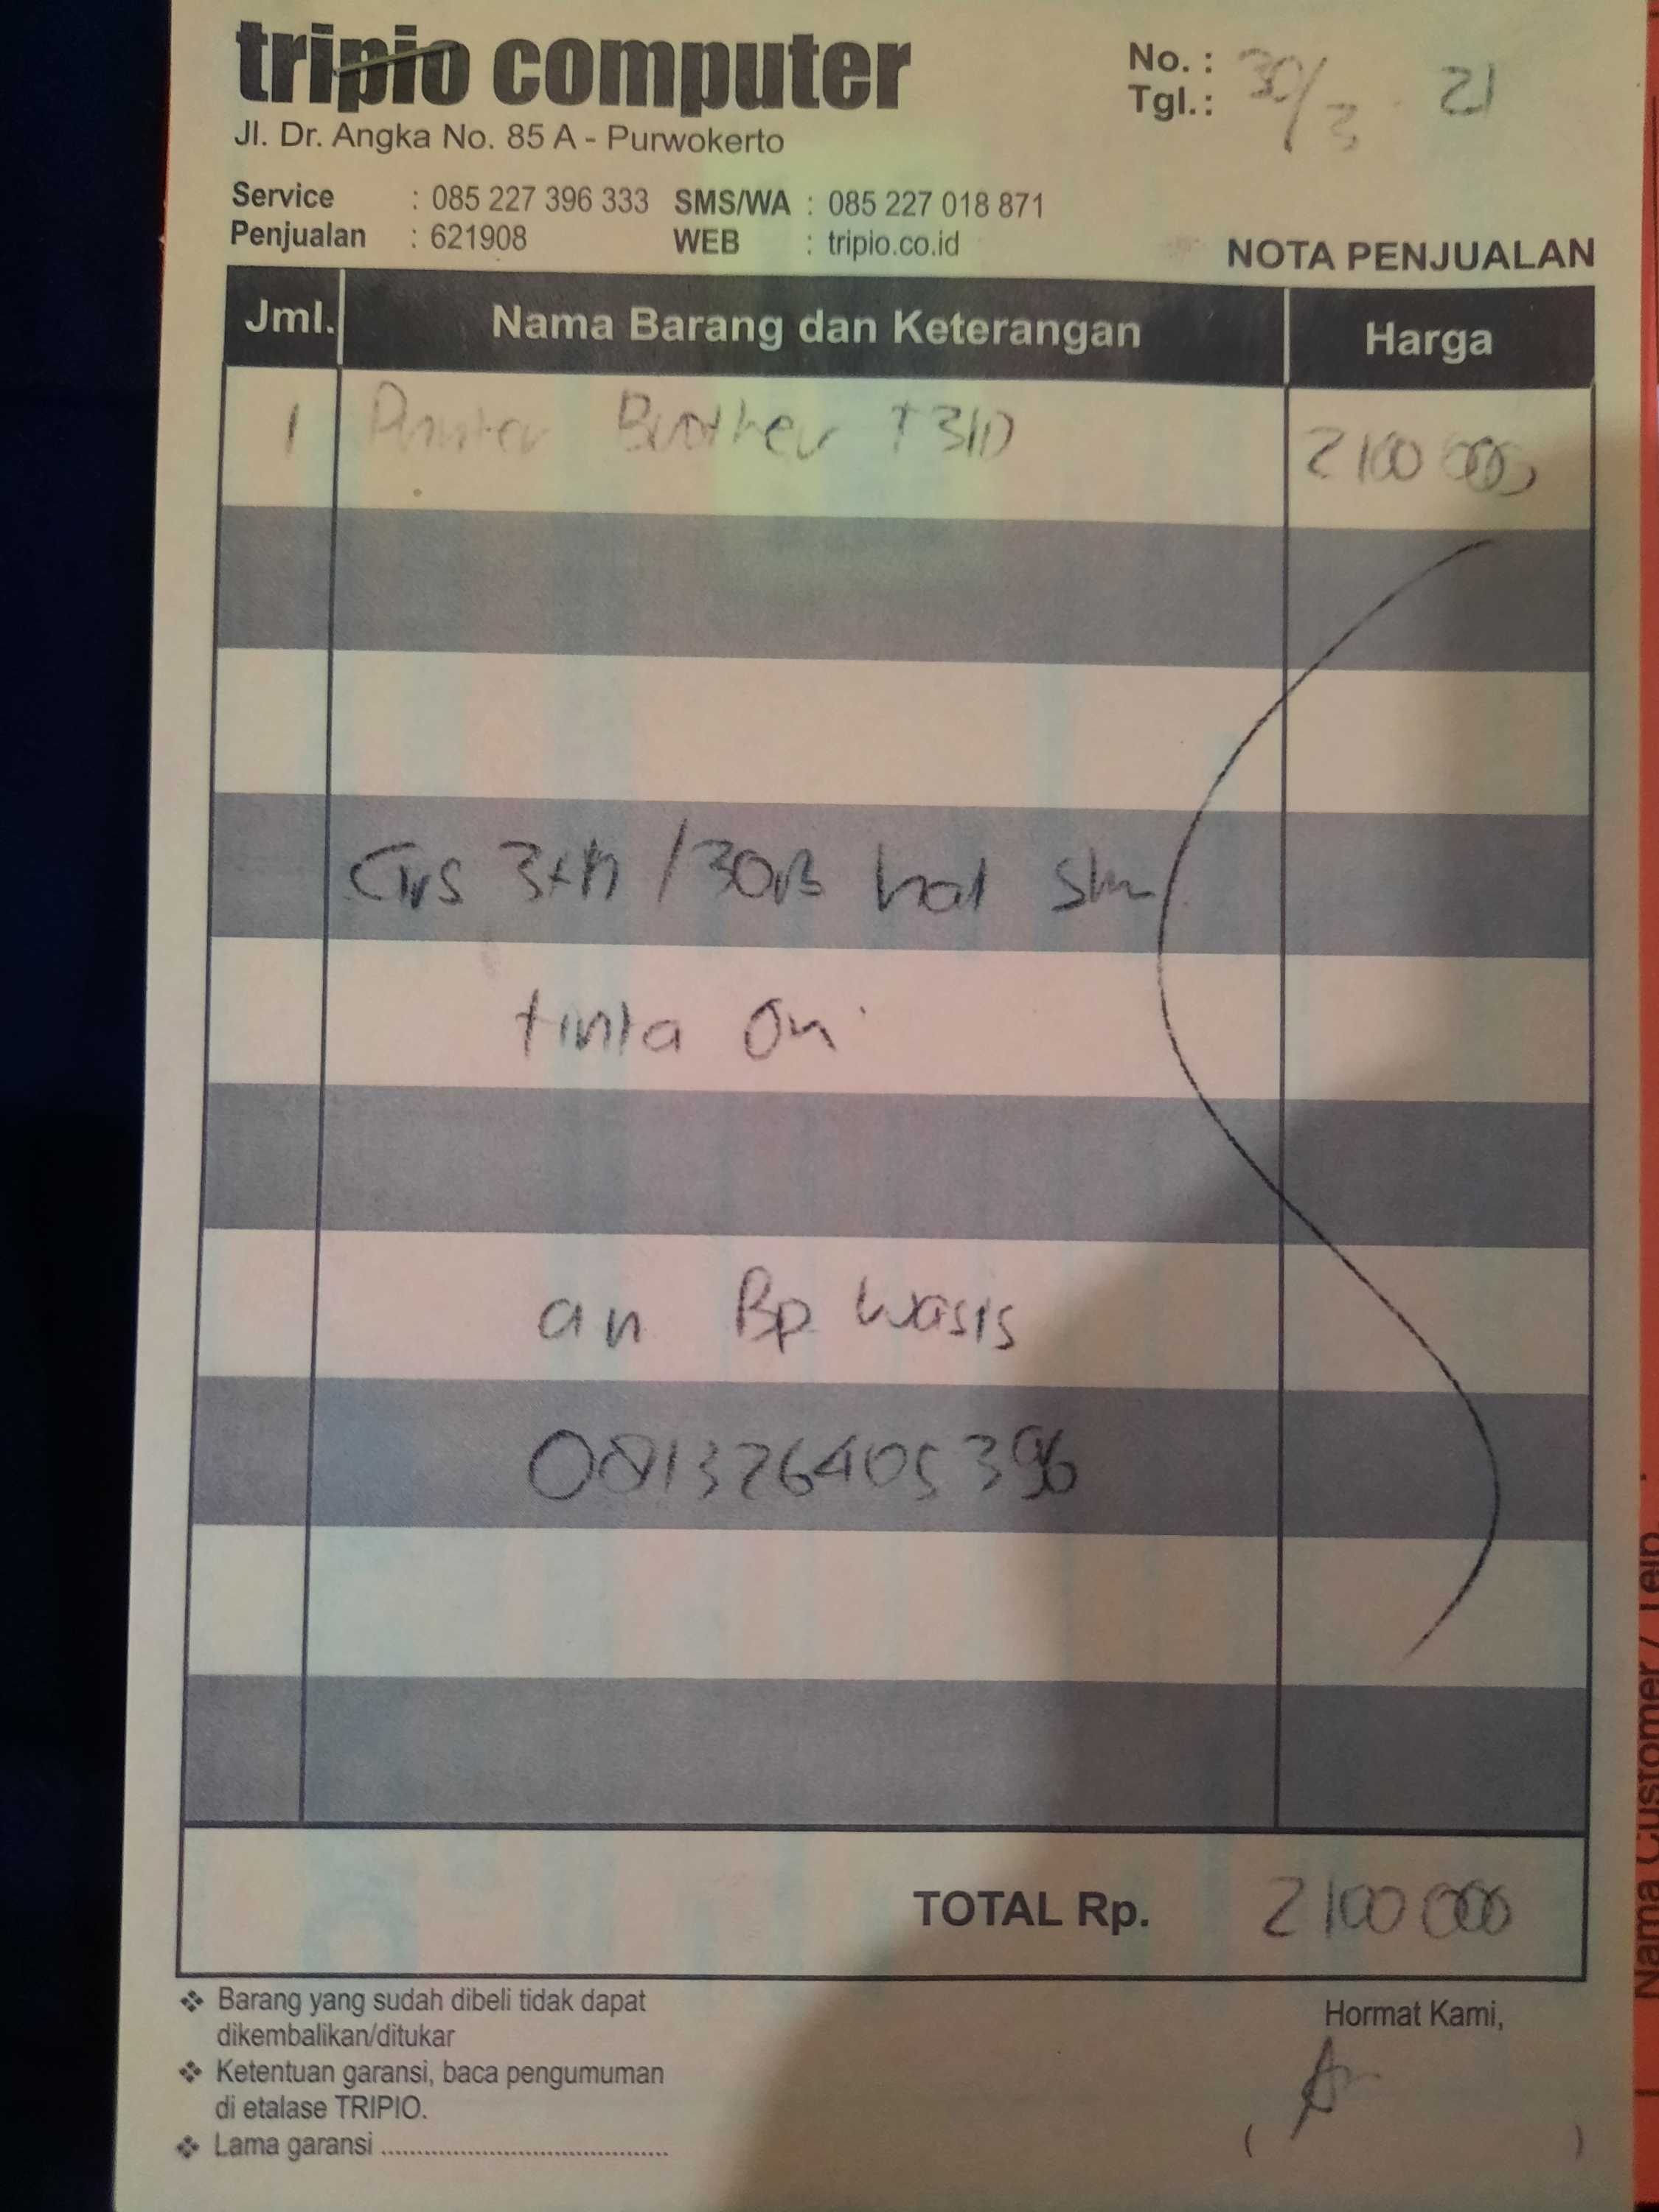 tripio computer
Jl. Dr. Angka No. 85 A - Purwokerto
No. :
Tgl. : 30/3 21
Service : 085 227 396 333 SMS/WA : 085 227 018 871
Penjualan : 621908 WEB : tripio.co.id
NOTA PENJUALAN
Jml. Nama Barang dan Keterangan Harga
1 Printer Brother T310 2100 000
Grs 3th /30rb hal
tinta Ori
an Bp Wasis
081326405396
TOTAL Rp. 2100 000
❖ Barang yang sudah dibeli tidak dapat
dikembalikan/ditukar
❖ Ketentuan garansi, baca pengumuman
di etalase TRIPIO.
❖ Lama garansi ........................................
Hormat Kami,
( )
Nama Customer / Telp